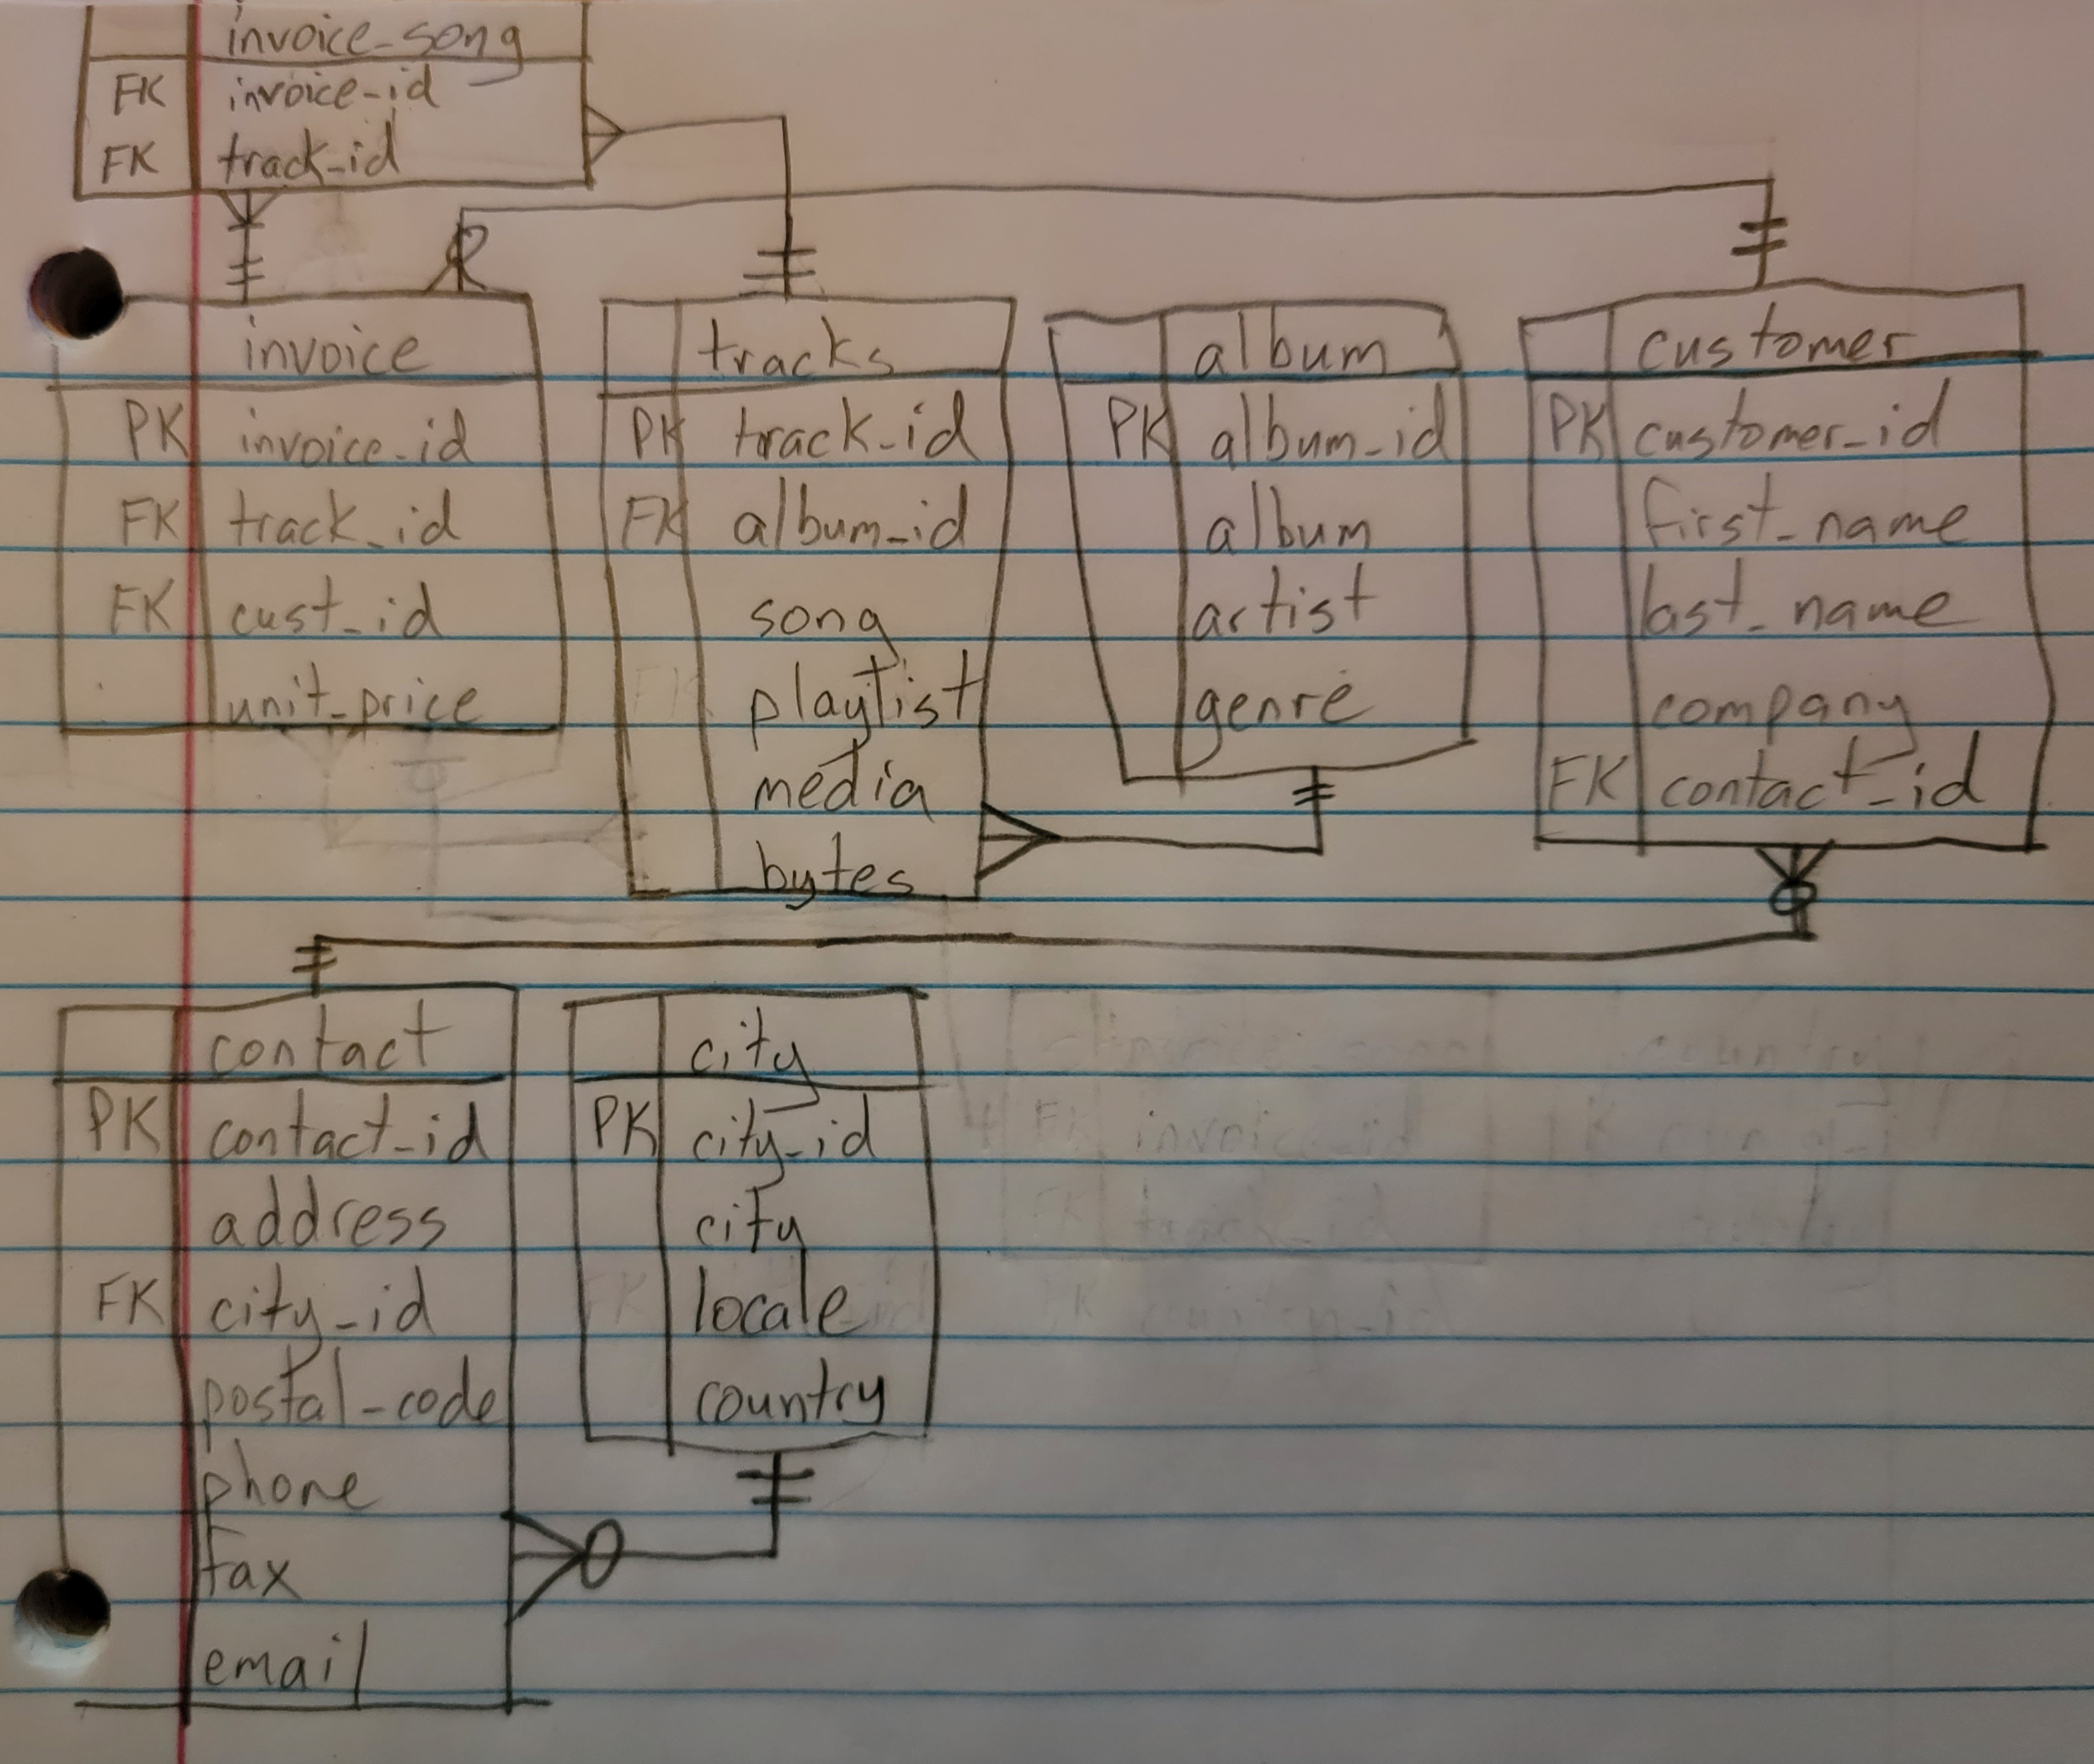 invoice_song
FK invoice_id
FK track_id
invoice
PK invoice_id
FK track_id
FK cust_id
unit_price
tracks
PK track_id
FK album_id
song
playlist
media
bytes
album
PK album_id
album
artist
genre
customer
PK customer_id
first_name
last_name
company
FK contact_id
contact
PK contact_id
address
FK city_id
postal_code
phone
fax
email
city
PK city_id
city
locale
country
FK invoice_id
FK track_id